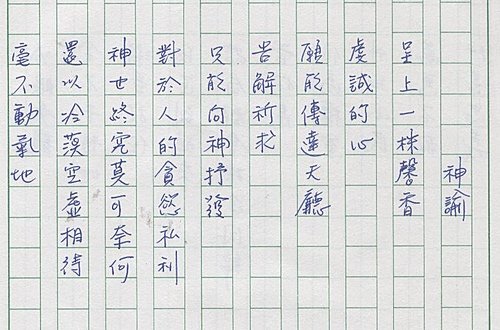 神諭
呈上一株馨香
虔誠的心
願能傳達天廳
告解祈求
只能向神抒發
對於人的貪慾私利
神也終究莫可奈何
還以冷漠空虛相待
毫不動氣地